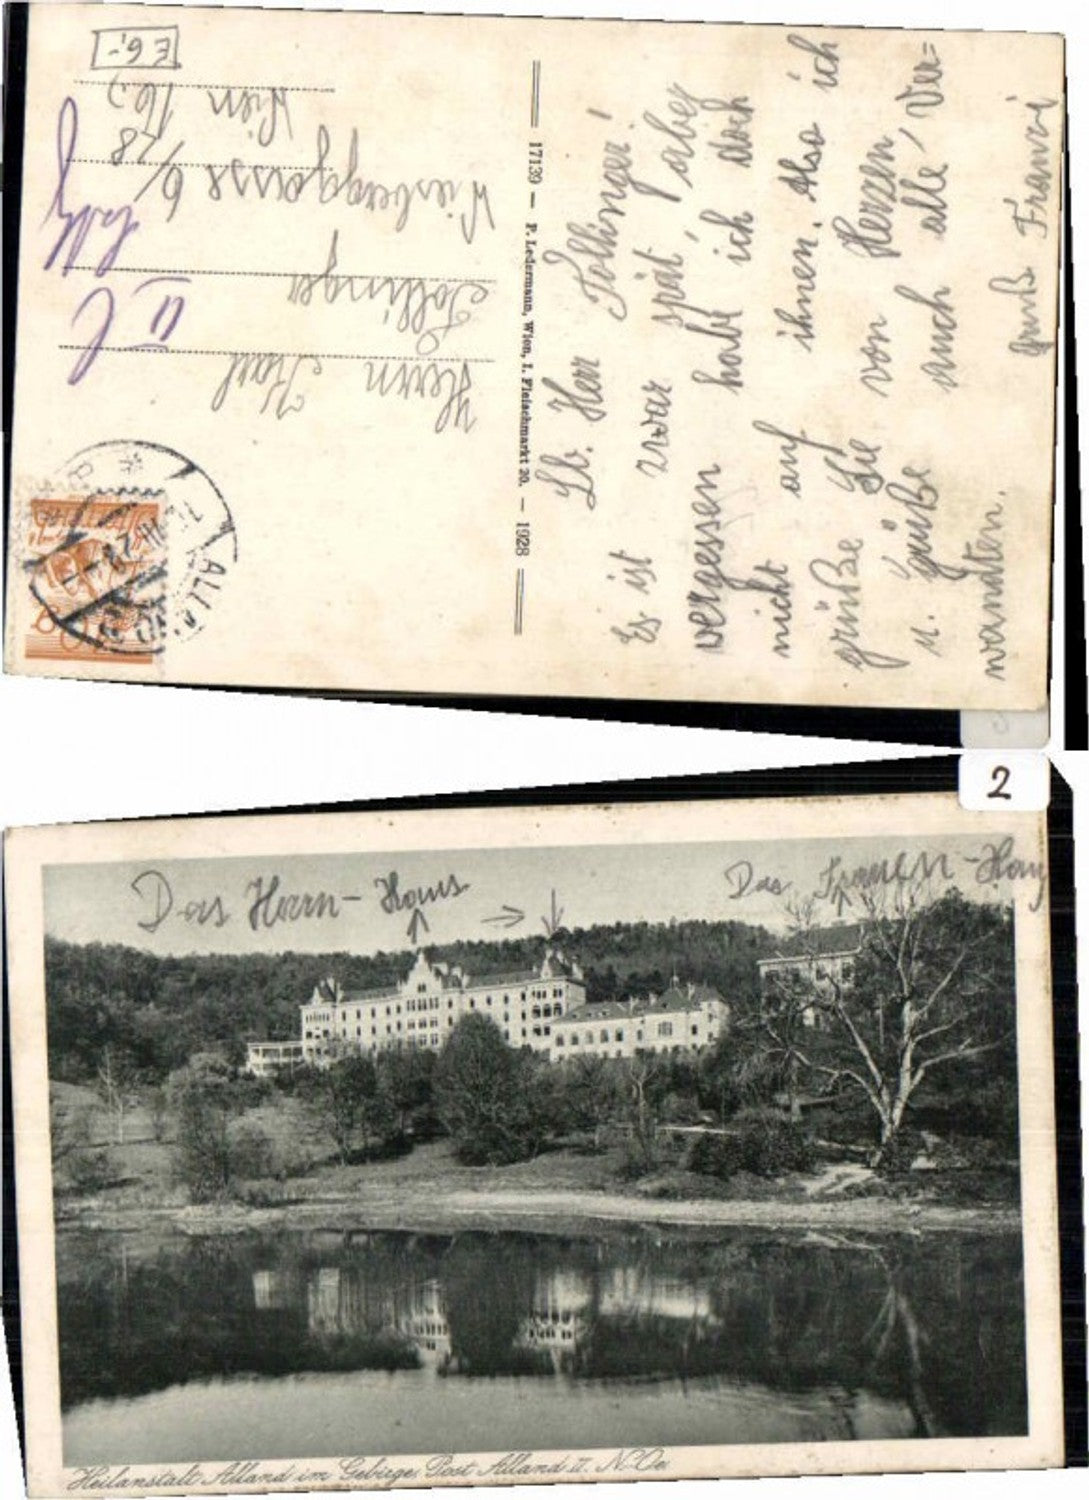 E 6,-
Herrn Karl
Follinger
Wiesberggasse 6/28
Wien 16.)
ALLAND
17139 — P. Ledermann, Wien, I. Fleischmarkt 20. — 1928
Lb. Herr Follinger!
Es ist zwar spät, aber
vergessen habe ich doch
nicht auf ihnen. Also ich
grüße Sie von Herzen
u. grüße auch alle, Ver=
wandten.
gruß Franzi
2
Das Herrn-Haus
Das Frauen-Haus
Heilanstalt Alland im Gebirge, Post Alland i. N.Oe.